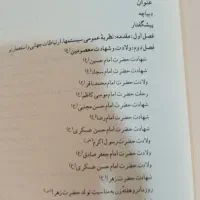 عنوان
دیباچه
پیشگفتار
فصل اول: مقدمه: نظریه عمومی سیستمها، ارتباطات جهانی و استعمار نو
فصل دوم: ولادت و شهادت معصومین (ع)
شهادت حضرت امام حسین (ع)
شهادت حضرت امام سجاد (ع)
ولادت حضرت امام محمد باقر (ع)
رحلت حضرت امام موسی کاظم (ع)
شهادت حضرت امام حسن مجتبی (ع)
شهادت حضرت امام رضا (ع)
شهادت حضرت امام حسن عسکری (ع)
ولادت حضرت رسول اکرم (ص)
ولادت حضرت امام جعفر صادق (ع)
ولادت حضرت امام حسن عسکری (ع)
شهادت حضرت زهرا (ع)
روز مادر و هفته زن به مناسبت تولد حضرت زهرا (س)